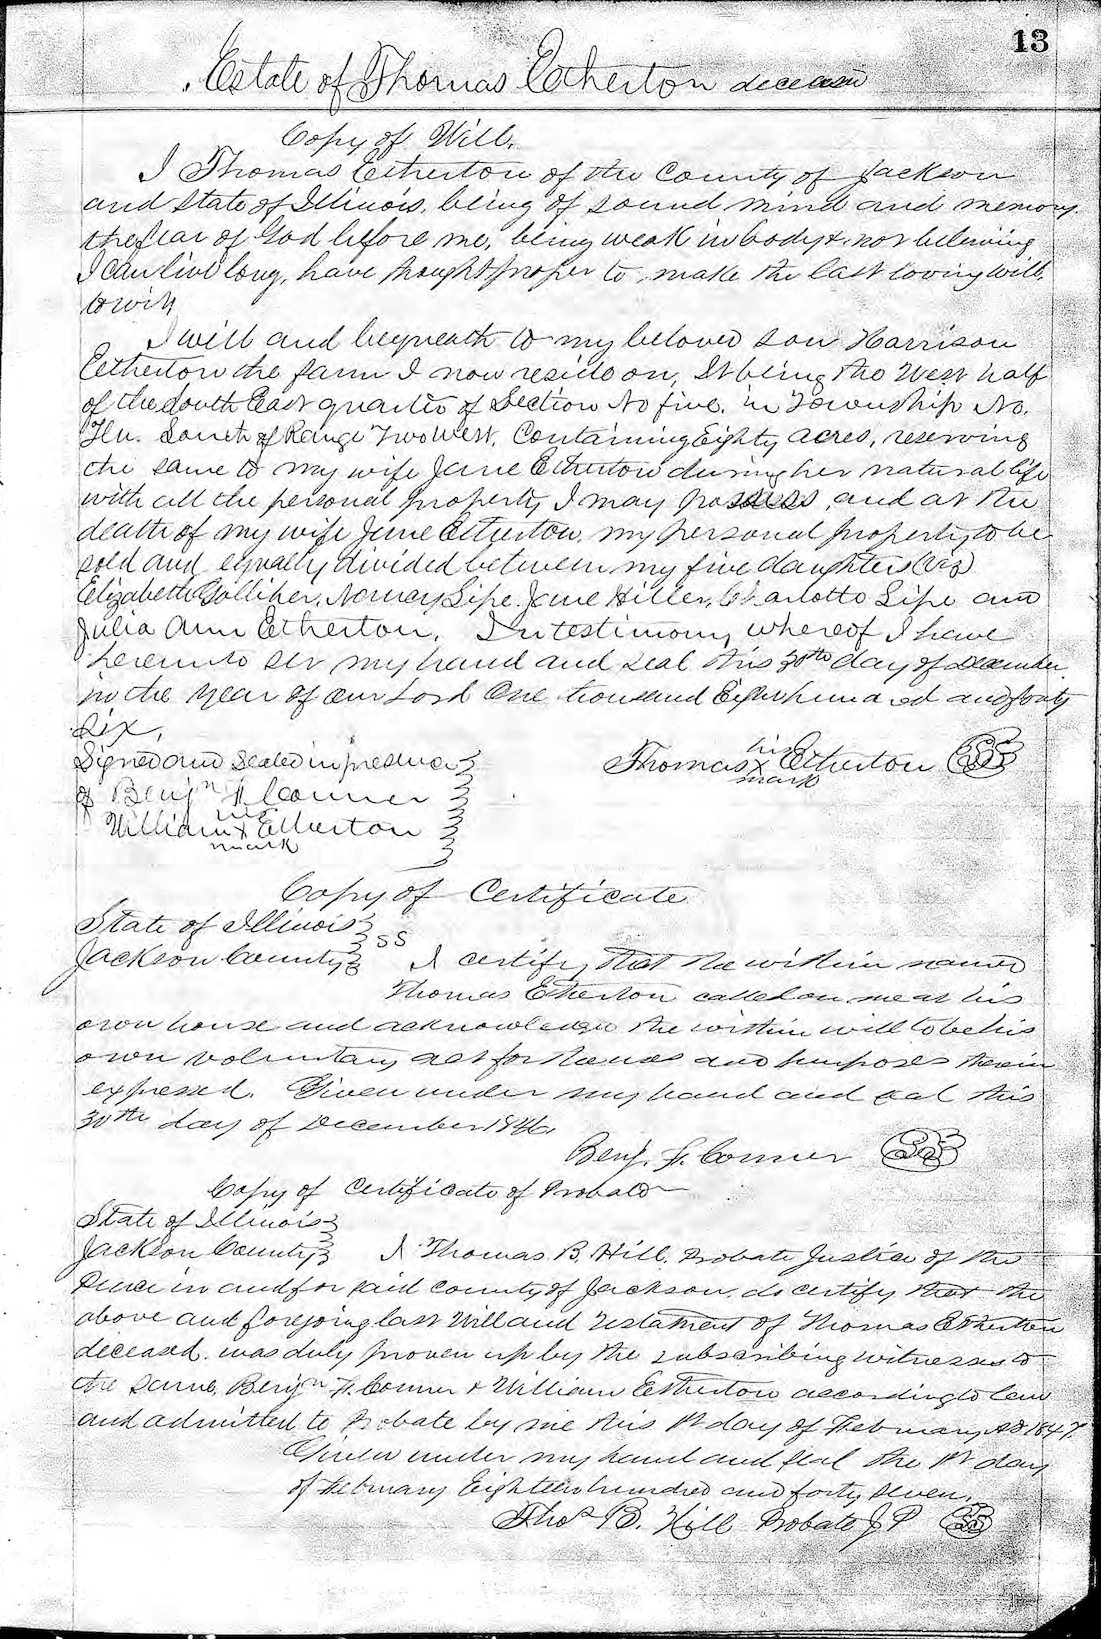 13
Estate of Thomas Etherton deceased
Copy of Will.
I Thomas Etherton of the County of Jackson
and State of Illinois, being of sound mind and memory
the fear of God before me, being weak in body & not believing
I can live long, have thought proper to make the last loving will,
towit,
I will and bequeath to my beloved son Harrison
Etherton the farm I now reside on, It being the West half
of the South East quarter of Section No five, in Township No.
Ten South of Range Two West, Containing Eighty acres, reserving
the same to my wife Jane Etherton during her natural life
with all the personal property I may possess, and at the
death of my wife Jane Etherton, my personal property to be
sold and equally divided between my five daughters (viz)
Elizabeth Golliher, Nancy Lipe, Jane Hiller, Charlotte Lipe and
Julia Ann Etherton. In testimony whereof I have
hereunto set my hand and seal this 30th day of December
in the year of our Lord One thousand Eight hundred and forty
six,
Signed and Sealed in presence
of Benjn F. Conner
William his x mark Etherton
Thomas his x mark Etherton Seal
Copy of Certificate
State of Illinois
Jackson County SS I certify that the within named
Thomas Etherton called on me at his
own house and acknowledged the within will to be his
own voluntary act for the uses and purposes therein
expressed. Given under my hand and seal this
30th day of December 1846.
Benj. F. Conner Seal
Copy of Certificate of Probate
State of Illinois
Jackson County I Thomas B. Hill, Probate Justice of the
Peace in and for said County of Jackson, do certify that the
above and foregoing last Will and Testament of Thomas Etherton
deceased, was duly proven up by the subscribing witnesses to
the same, Benjn F. Conner & William Etherton according to law
and admitted to Probate by me this 1st day of February AD 1847.
Given under my hand and seal the 1st day
of February Eighteen hundred and forty seven.
Thos B. Hill Probate J P Seal